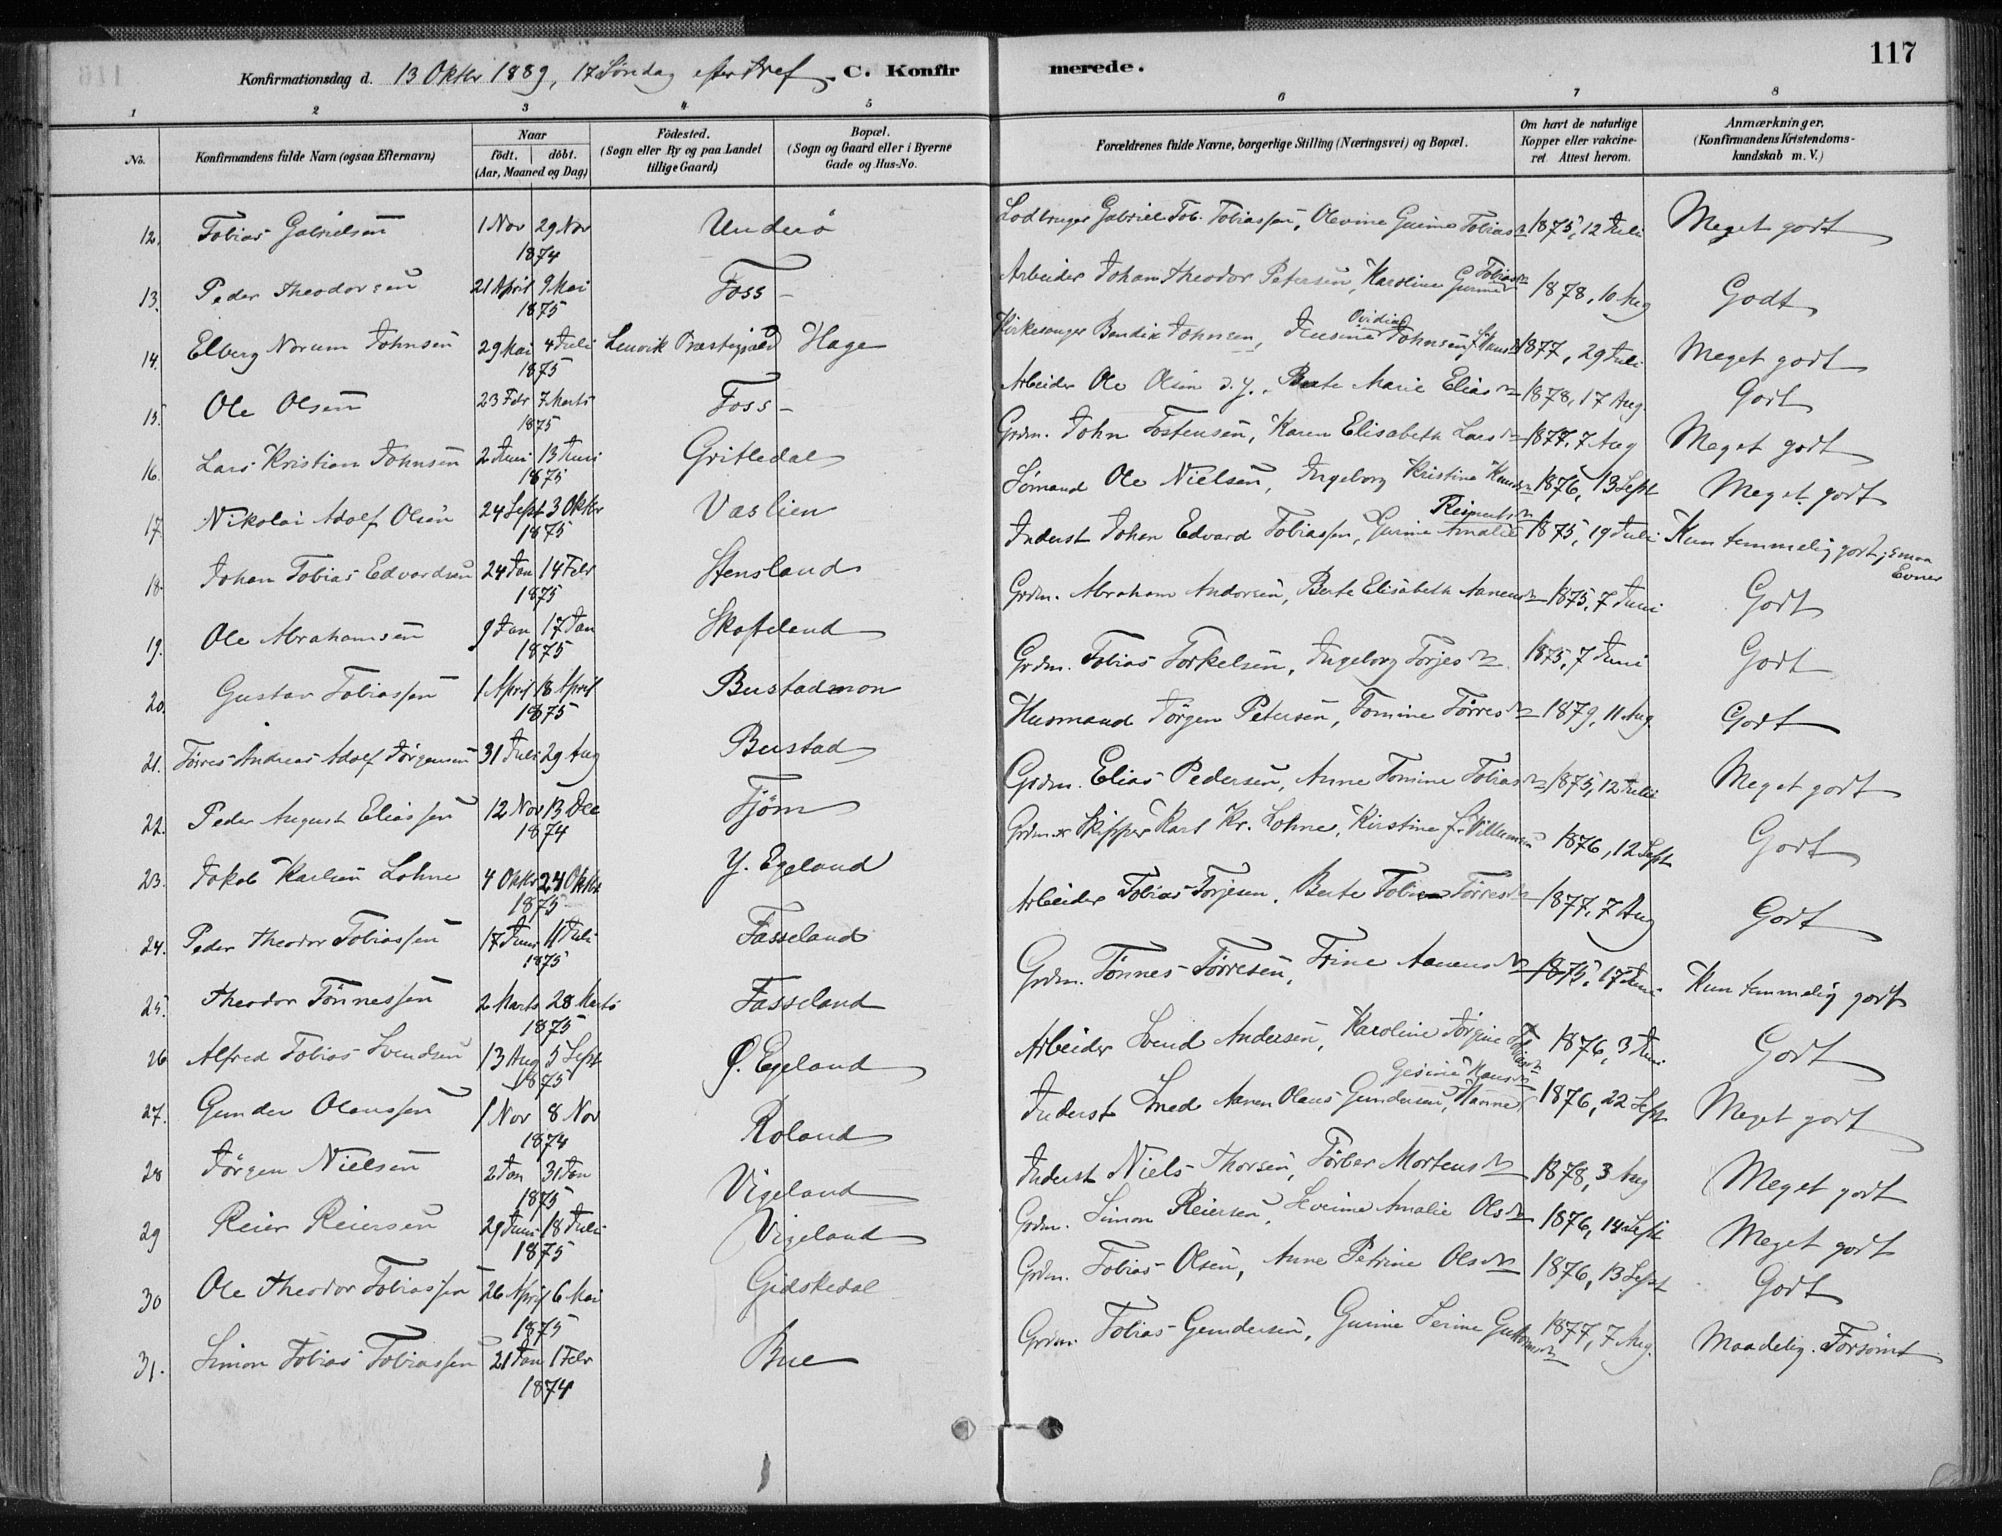 117
Konfirmationsdag d. 13 Oktbr 1889, 17 Søndag efter Tref. C. Konfirmerede.
1 2 3 4 5 6 7 8
No. Konfirmandens fulde Navn (ogsaa Efternavn) Naar födt. döbt. (Aar, Maaned og Dag) Födested. (Sogn eller By og paa Landet tillige Gaard) Bopæl. (Sogn og Gaard eller i Byerne Gade og Hus-No. Forældrenes fulde Navne, borgerlige Stilling (Næringsvei) og Bopæl. Om havt de naturlige Kopper eller vakcineret Attest herom. Anmærkninger. (Konfirmandens Kristendomskundskab m. V.)
12. Tobias Gabrielsen 1 Nov 29 Nov 1874 Underö Lodbruger Gabriel Tob. Tobiassen, Olevine Gurine Tobiasd 1875, 12 Juli Meget godt
13. Peder Theodorsen 21 April 9 Mai 1875 Foss Arbeider Johan Theodor Petersen, Karoline Gurine Tobiasd 1878, 10 Aug Godt
14. Elberg Norum Johnsen 29 Mai 4 Juli 1875 Lenvik Præstegjæld Hage Kirkesanger Bendix Johnsen, Ovidia Johnsen f. 1877, 29 Juli Meget godt
15. Ole Olsen 23 Febr 7 Marts 1875 Foss Arbeider Ole Olsen d. y., Berte Marie Eliasd 1878, 17 Aug Godt
16. Lars Kristian Johnsen 2 Juni 13 Juni 1875 Gritledal Grdm. John Tostensen, Karen Elisabeth Larsd 1877, 7 Aug Meget godt
17. Nikolai Adolf Olsen 24 Sept 3 Oktbr 1875 Vaslien Sömand Ole Nielsen, Ingeborg Kristine 1876, 13 Sept Meget godt
18. Johan Tobias Edvardsen 24 Jan 14 Febr 1875 Stensland Inderst Johan Edvard Tobiassen, Gurine Amalie Reinertsd 1875, 19 Juli Kun temmelig godt; smaa Evner
19. Ole Abrahamsen 9 Jan 17 Jan 1875 Skofteland Grdm. Abraham Andersen, Berte Elisabeth Aanensd 1875, 7 Juni Godt
20. Gustav Tobiassen 1 April 18 April 1875 Bustadmon Grdm. Tobias Torkelsen, Ingeborg Torjesd 1875, 7 Juni Godt
21. Törres Andreas Adolf Jörgensen 31 Juli 29 Aug Bustad Husmand Jörgen Petersen, Tomine Törresd 1879, 11 Aug Godt
22. Peder August Eliassen 12 Nov 13 Dec 1874 Tjöm Grdm. Elias Pedersen, Anne Tomine Tobiasd 1875, 12 Juli Meget godt
23. Jakob Karlsen Lohne 4 Oktbr 24 Oktbr 1875 Y. Egeland Grdm. & Skipper Karl Kr. Lohne, Kirstine f. Villumsen 1876, 12 Sept Godt
24. Peder Theodor Tobiassen 17 Juni 11 Juli 1875 Fasseland Arbeider Tobias Torjesen, Berte Törresd 1877, 7 Aug Godt
25. Theodor Tönnessen 2 Marts 28 Marts 1875 Fasseland Grdm. Tönnes Törresen, Trine Aanensd 1875, 17 Juni Kun temmelig godt
26 Alfred Tobias Svendsen 13 Aug 5 Sept 1875 Ö. Egeland Arbeider Svend Andersen, Karoline Jörgine Tobiasd 1876, 3 Juni Godt
27. Gunder Olaussen 1 Nov 8 Nov 1874 Roland Inderst Smed Aanen Olaus Gundersen, Hanne Gesine Hansd 1876, 22 Sept Meget godt
28 Jörgen Nielsen 2 Jan 31 Jan 1875 Vigeland Inderst Niels Thorsen, Törber Mortensd 1878, 3 Aug Meget godt
29 Reier Reiersen 29 Juni 18 Juli 1875 Vigeland Grdm. Simon Reiersen, Severine Amalie Olsd 1876, 14 Sept Meget godt
30 Ole Theodor Tobiassen 26 April 6 Mai 1875 Gidskedal Grdm. Tobias Olsen, Anne Petrine Olsd 1876, 13 Sept Godt
31. Simon Tobias Tobiassen 21 Jan 1 Febr 1874 Bue Grdm. Tobias Gundersen, Gurine Serine Guttormsd 1877, 7 Aug. Maadelig. Forsömt